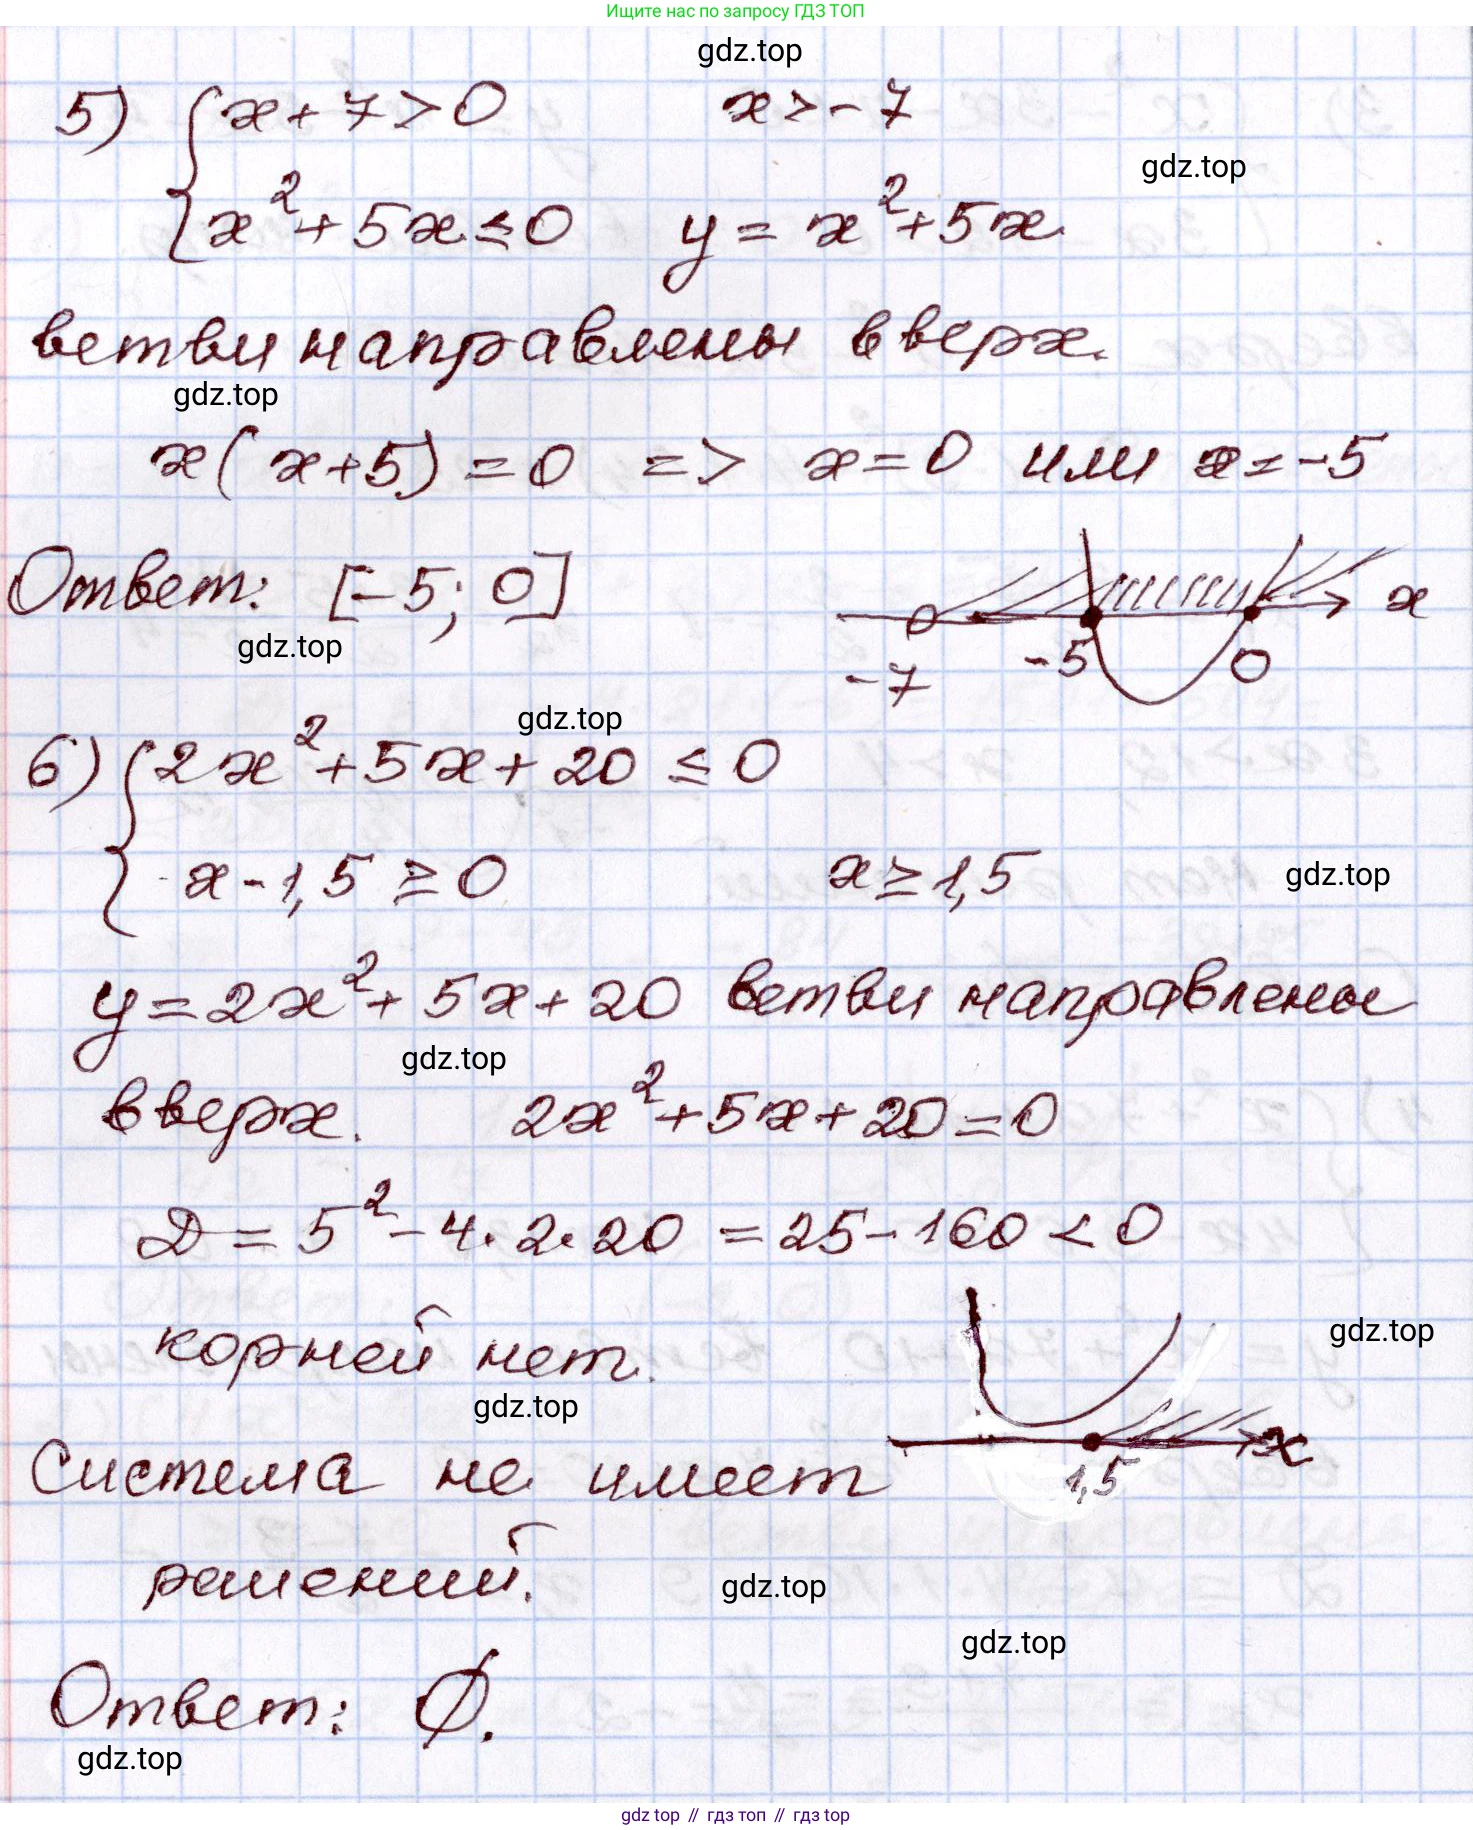 Ищите нас по запросу ГДЗ ТОП
gdz.top
5) { x + 7 > 0 x > - 7
gdz.top
x² + 5x ≤ 0 y = x² + 5x
ветви направлены вверх.
gdz.top
x(x+5) = 0 => x = 0 или x = -5
Ответ: [-5; 0]
x
-7 -5 0
gdz.top
gdz.top
6) { 2x² + 5x + 20 ≤ 0
x - 1,5 ≥ 0 x ≥ 1,5
gdz.top
y = 2x² + 5x + 20 ветви направлены
gdz.top
вверх. 2x² + 5x + 20 = 0
D = 5² - 4 · 2 · 20 = 25 - 160 < 0
корней нет.
gdz.top
gdz.top
x
1,5
Система не имеет
решений.
gdz.top
gdz.top
Ответ: Ø.
gdz.top
gdz top // гдз топ // gdz top